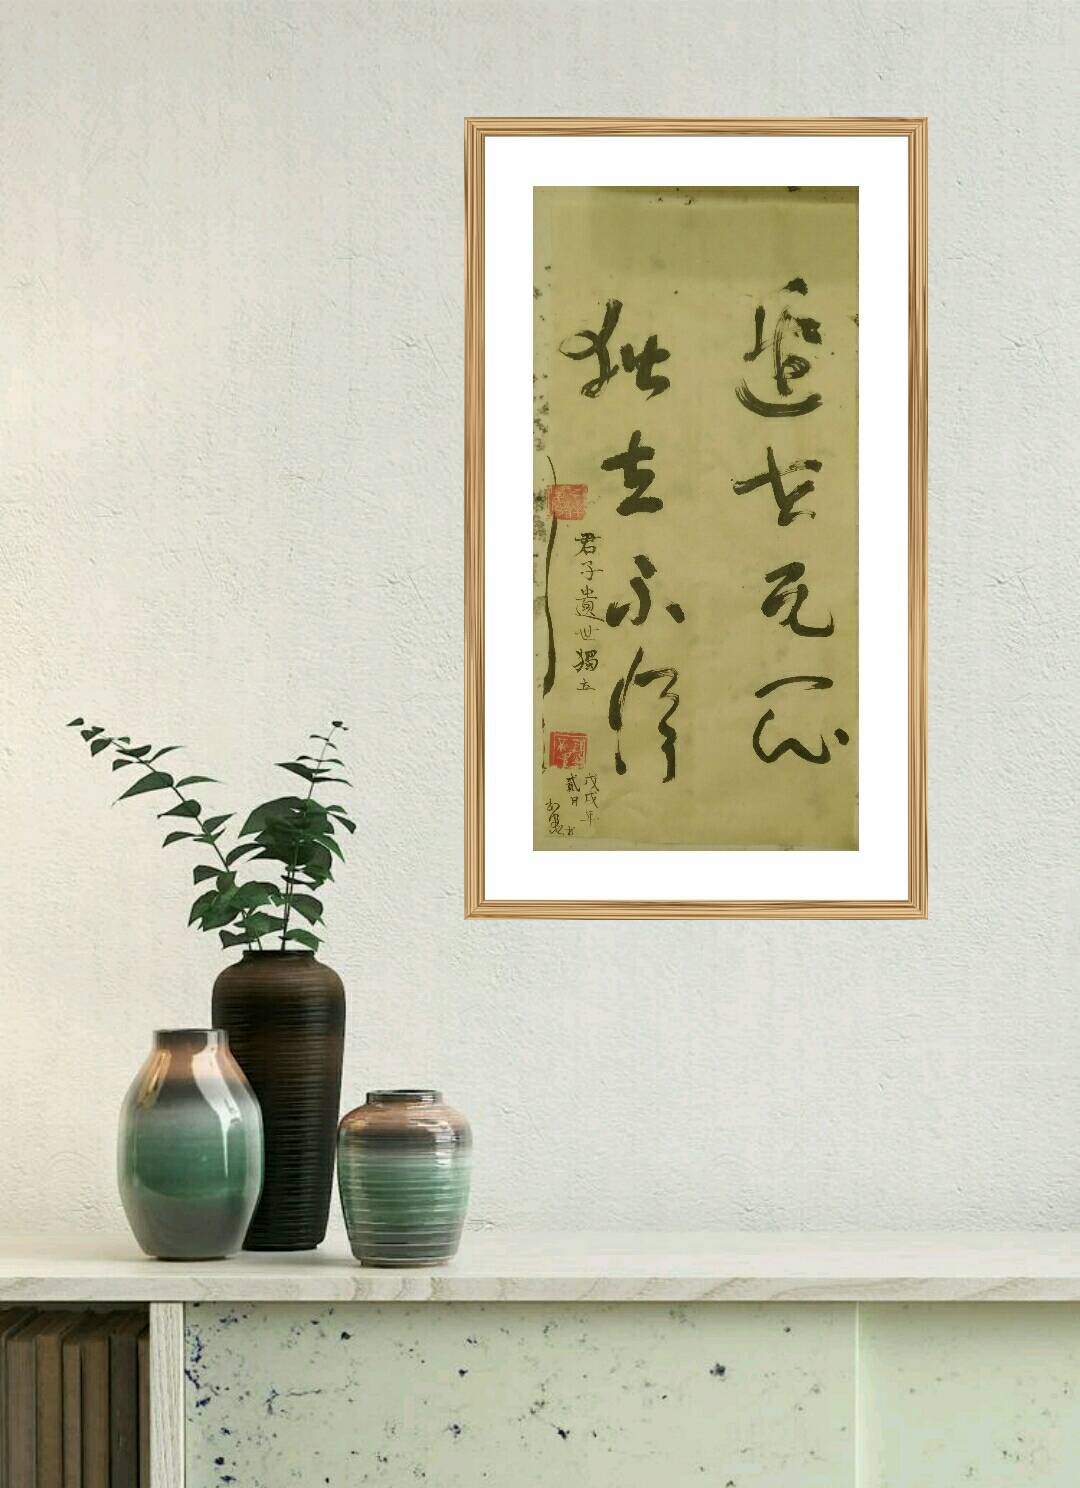 遁世无闷
独立不惧
君子遺世獨立
戊戌年
貳月